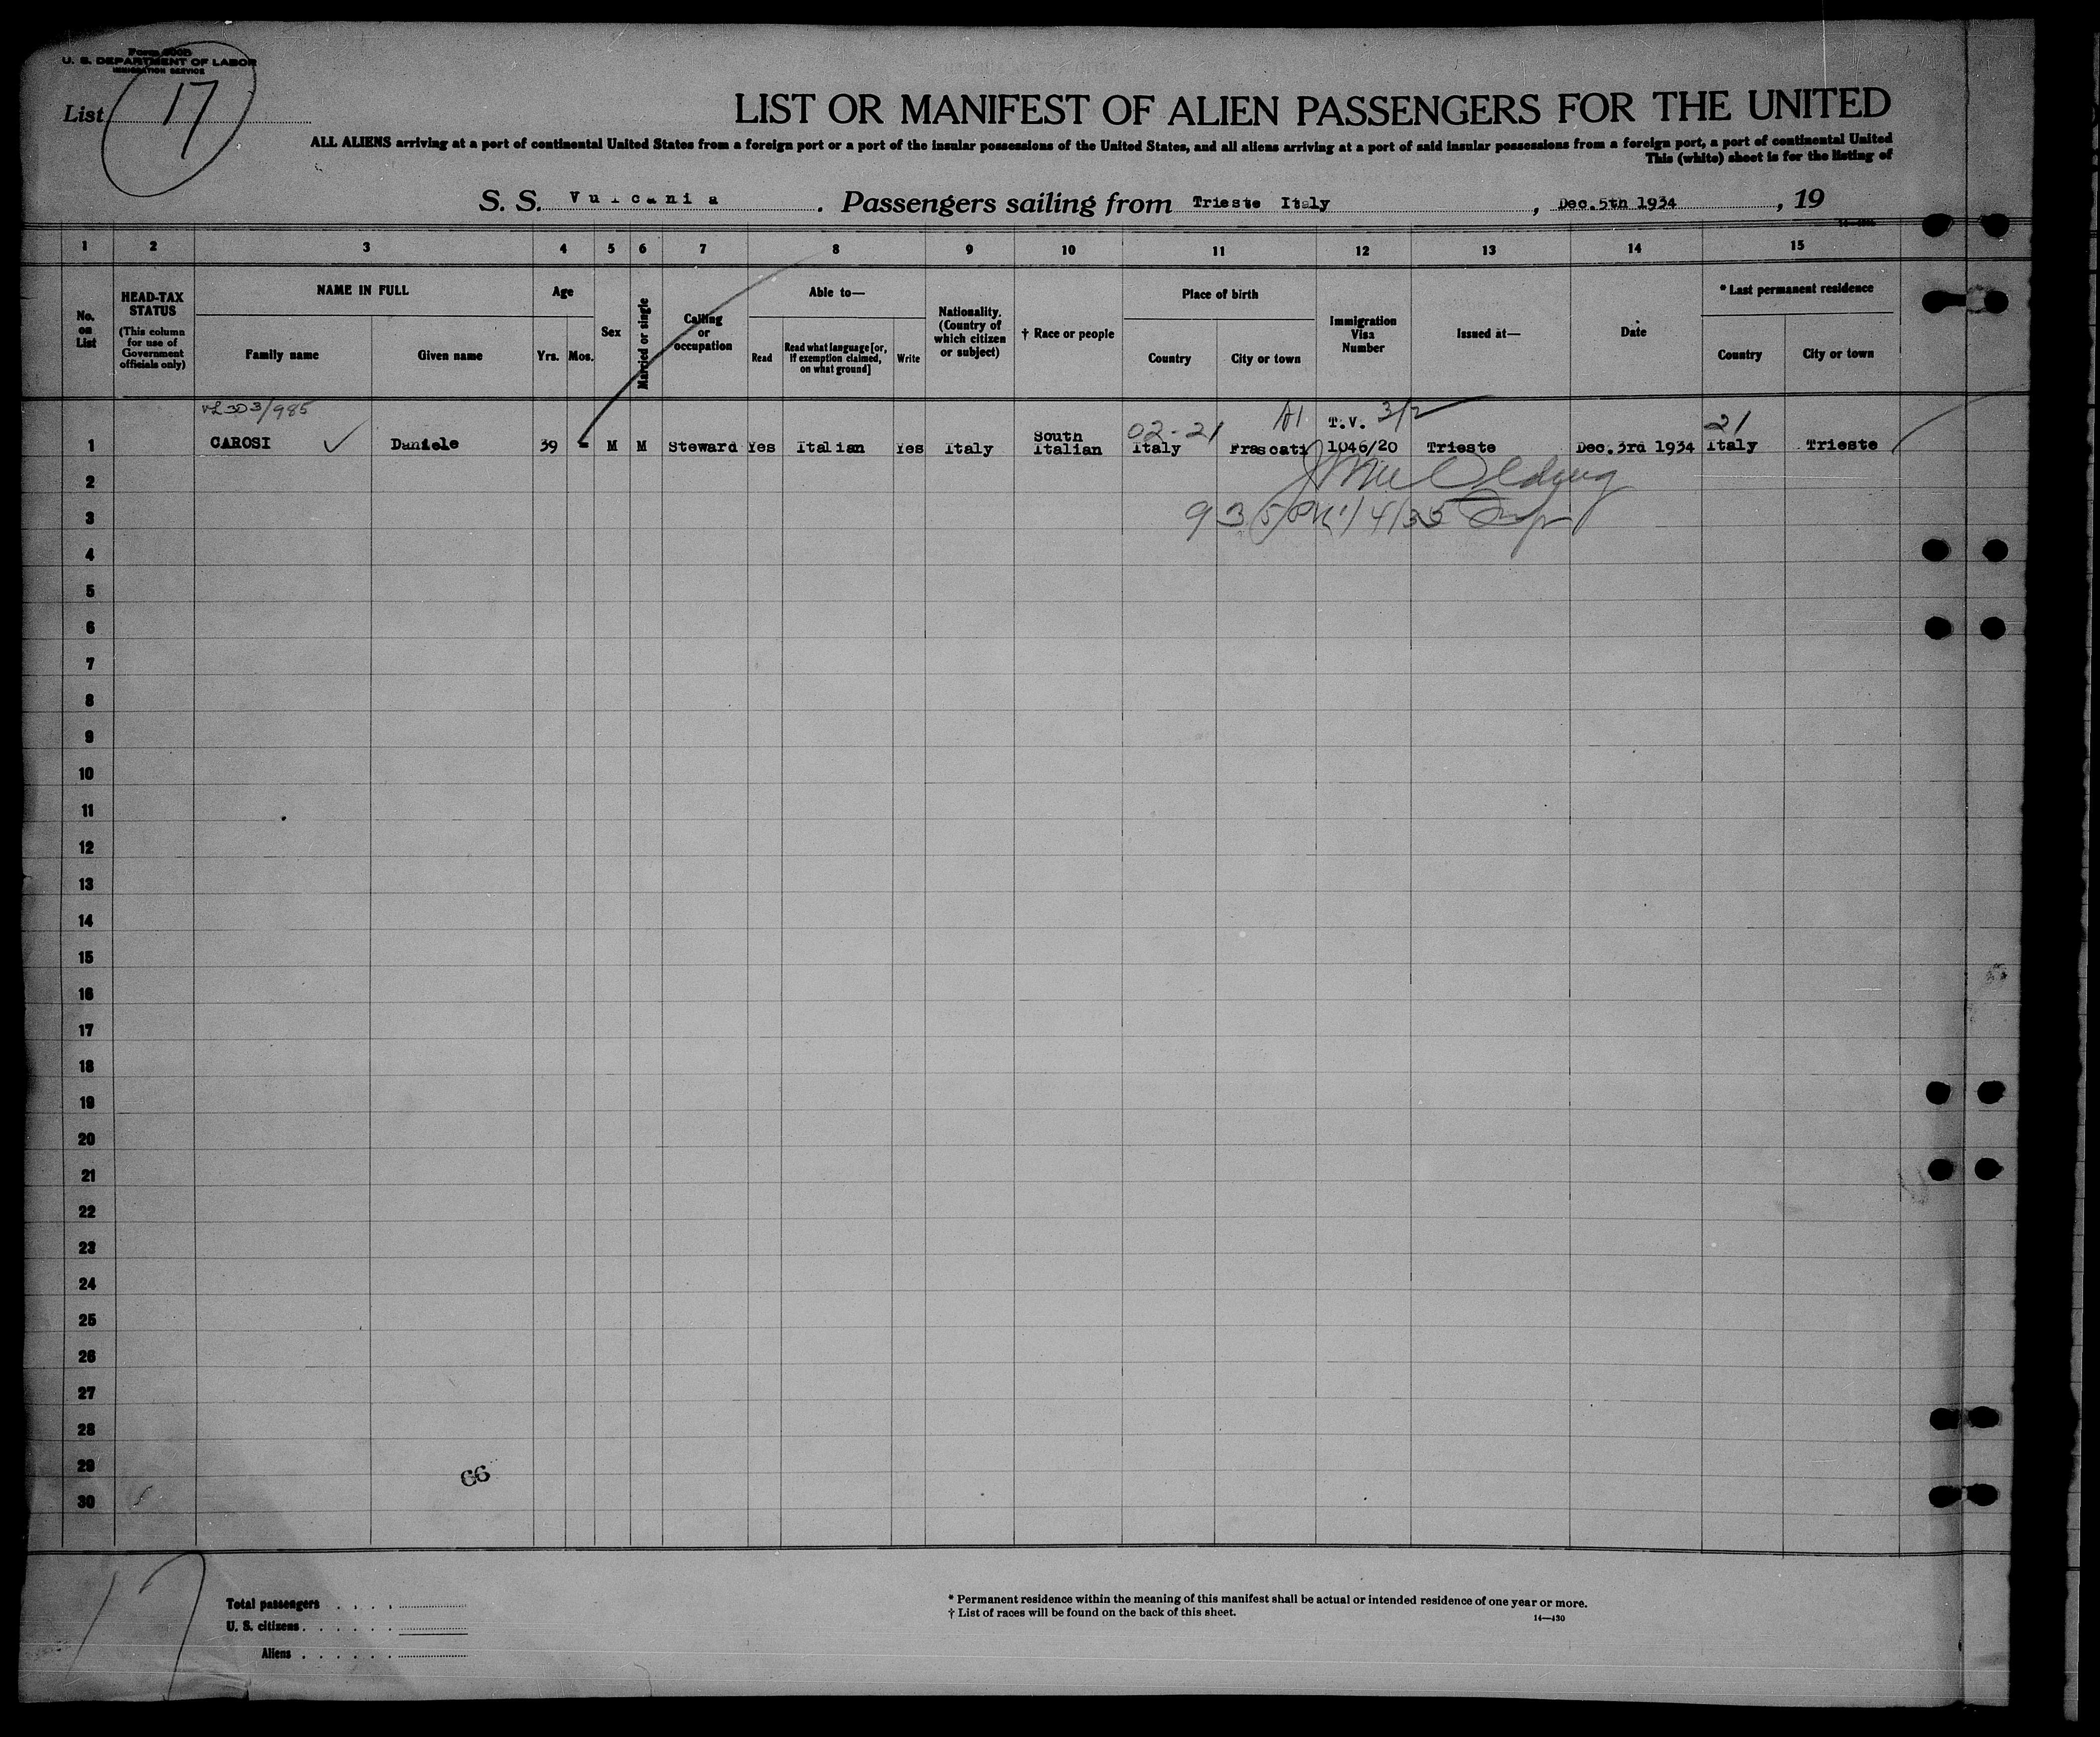 Form 500B
U. S. DEPARTMENT OF LABOR
IMMIGRATION SERVICE
List 17
LIST OR MANIFEST OF ALIEN PASSENGERS FOR THE UNITED
ALL ALIENS arriving at a port of continental United States from a foreign port or a port of the insular possessions of the United States, and all aliens arriving at a port of said insular possessions from a foreign port, a port of continental United
This (white) sheet is for the listing of
S. S. Vulcania . Passengers sailing from Trieste Italy , Dec.5th 1934 , 19
1 2 3 4 5 6 7 8 9 10 11 12 13 14 15
No. on List
HEAD-TAX STATUS (This column for use of Government officials only)
NAME IN FULL
Family name Given name
Age
Yrs. Mos.
Sex
Married or single
Calling or occupation
Able to—
Read
Read what language [or, if exemption claimed, on what ground]
Write
Nationality. (Country of which citizen or subject)
† Race or people
Place of birth
Country City or town
Immigration Visa Number
Issued at—
Date
* Last permanent residence
Country City or town
A1 T.V. 3/2
02-21 21
1 CAROSI ✓ Daniele 39 - M M Steward Yes Italian Yes Italy South Italian Italy Frascati 1046/20 Trieste Dec.3rd 1934 Italy Trieste
2
3
4
5
6
7
8
9
10
11
12
13
14
15
16
17
18
19
20
21
22
23
24
25
26
27
28
29
66
30
17
Total passengers
U. S. citizens
Aliens
* Permanent residence within the meaning of this manifest shall be actual or intended residence of one year or more.
† List of races will be found on the back of this sheet.
14—430